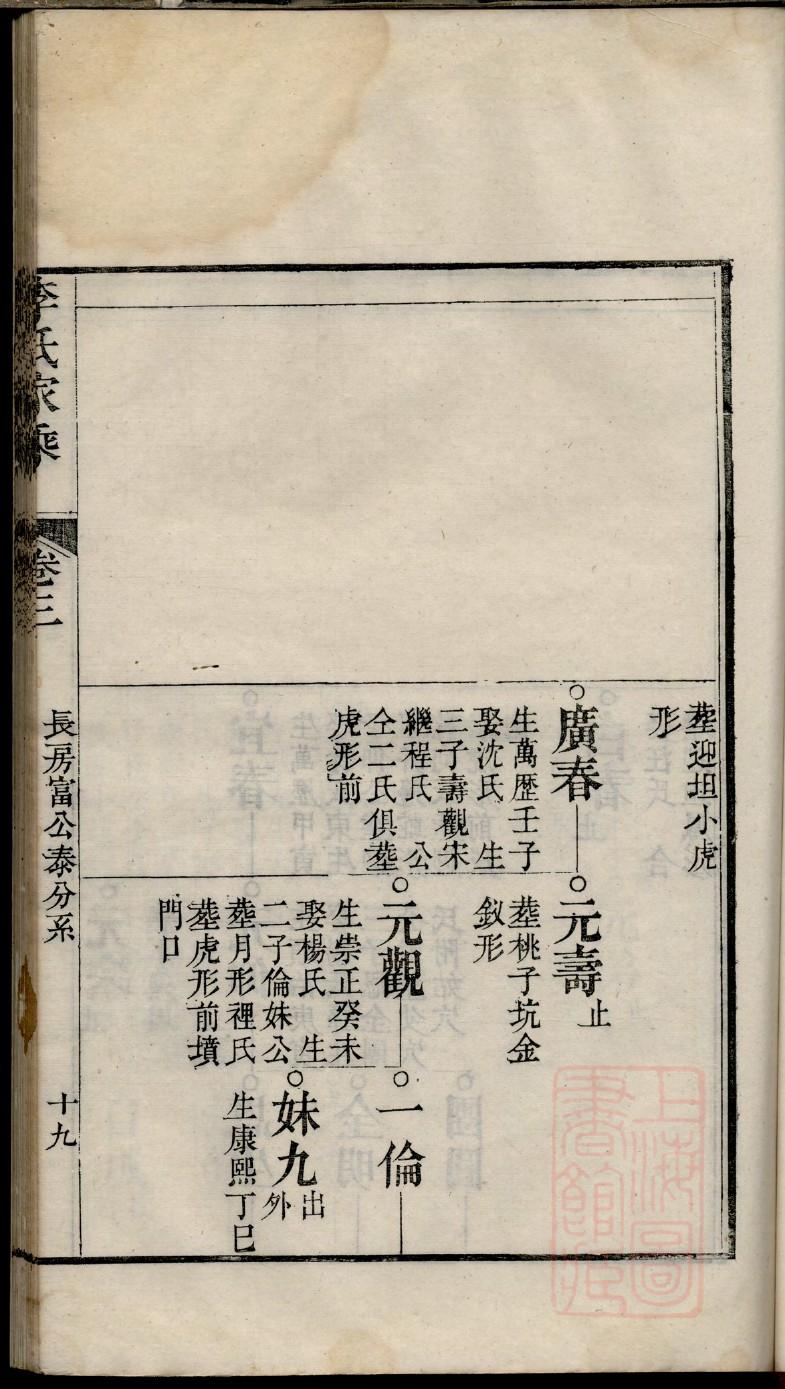 葬迎坦小虎
形
廣春
生萬歷壬子
娶沈氏 生
三子壽觀宋
繼程氏 公
仝二氏俱葬
虎形前
元壽 止
葬桃子坑金
釵形
元觀
生崇正癸未
娶楊氏 生
二子倫妹公
葬月形裡氏
葬虎形前墳
門口
一倫
妹九 出外
生康熙丁巳
李氏家乘
卷三
長房富公泰分系
十九
上海圖書館藏